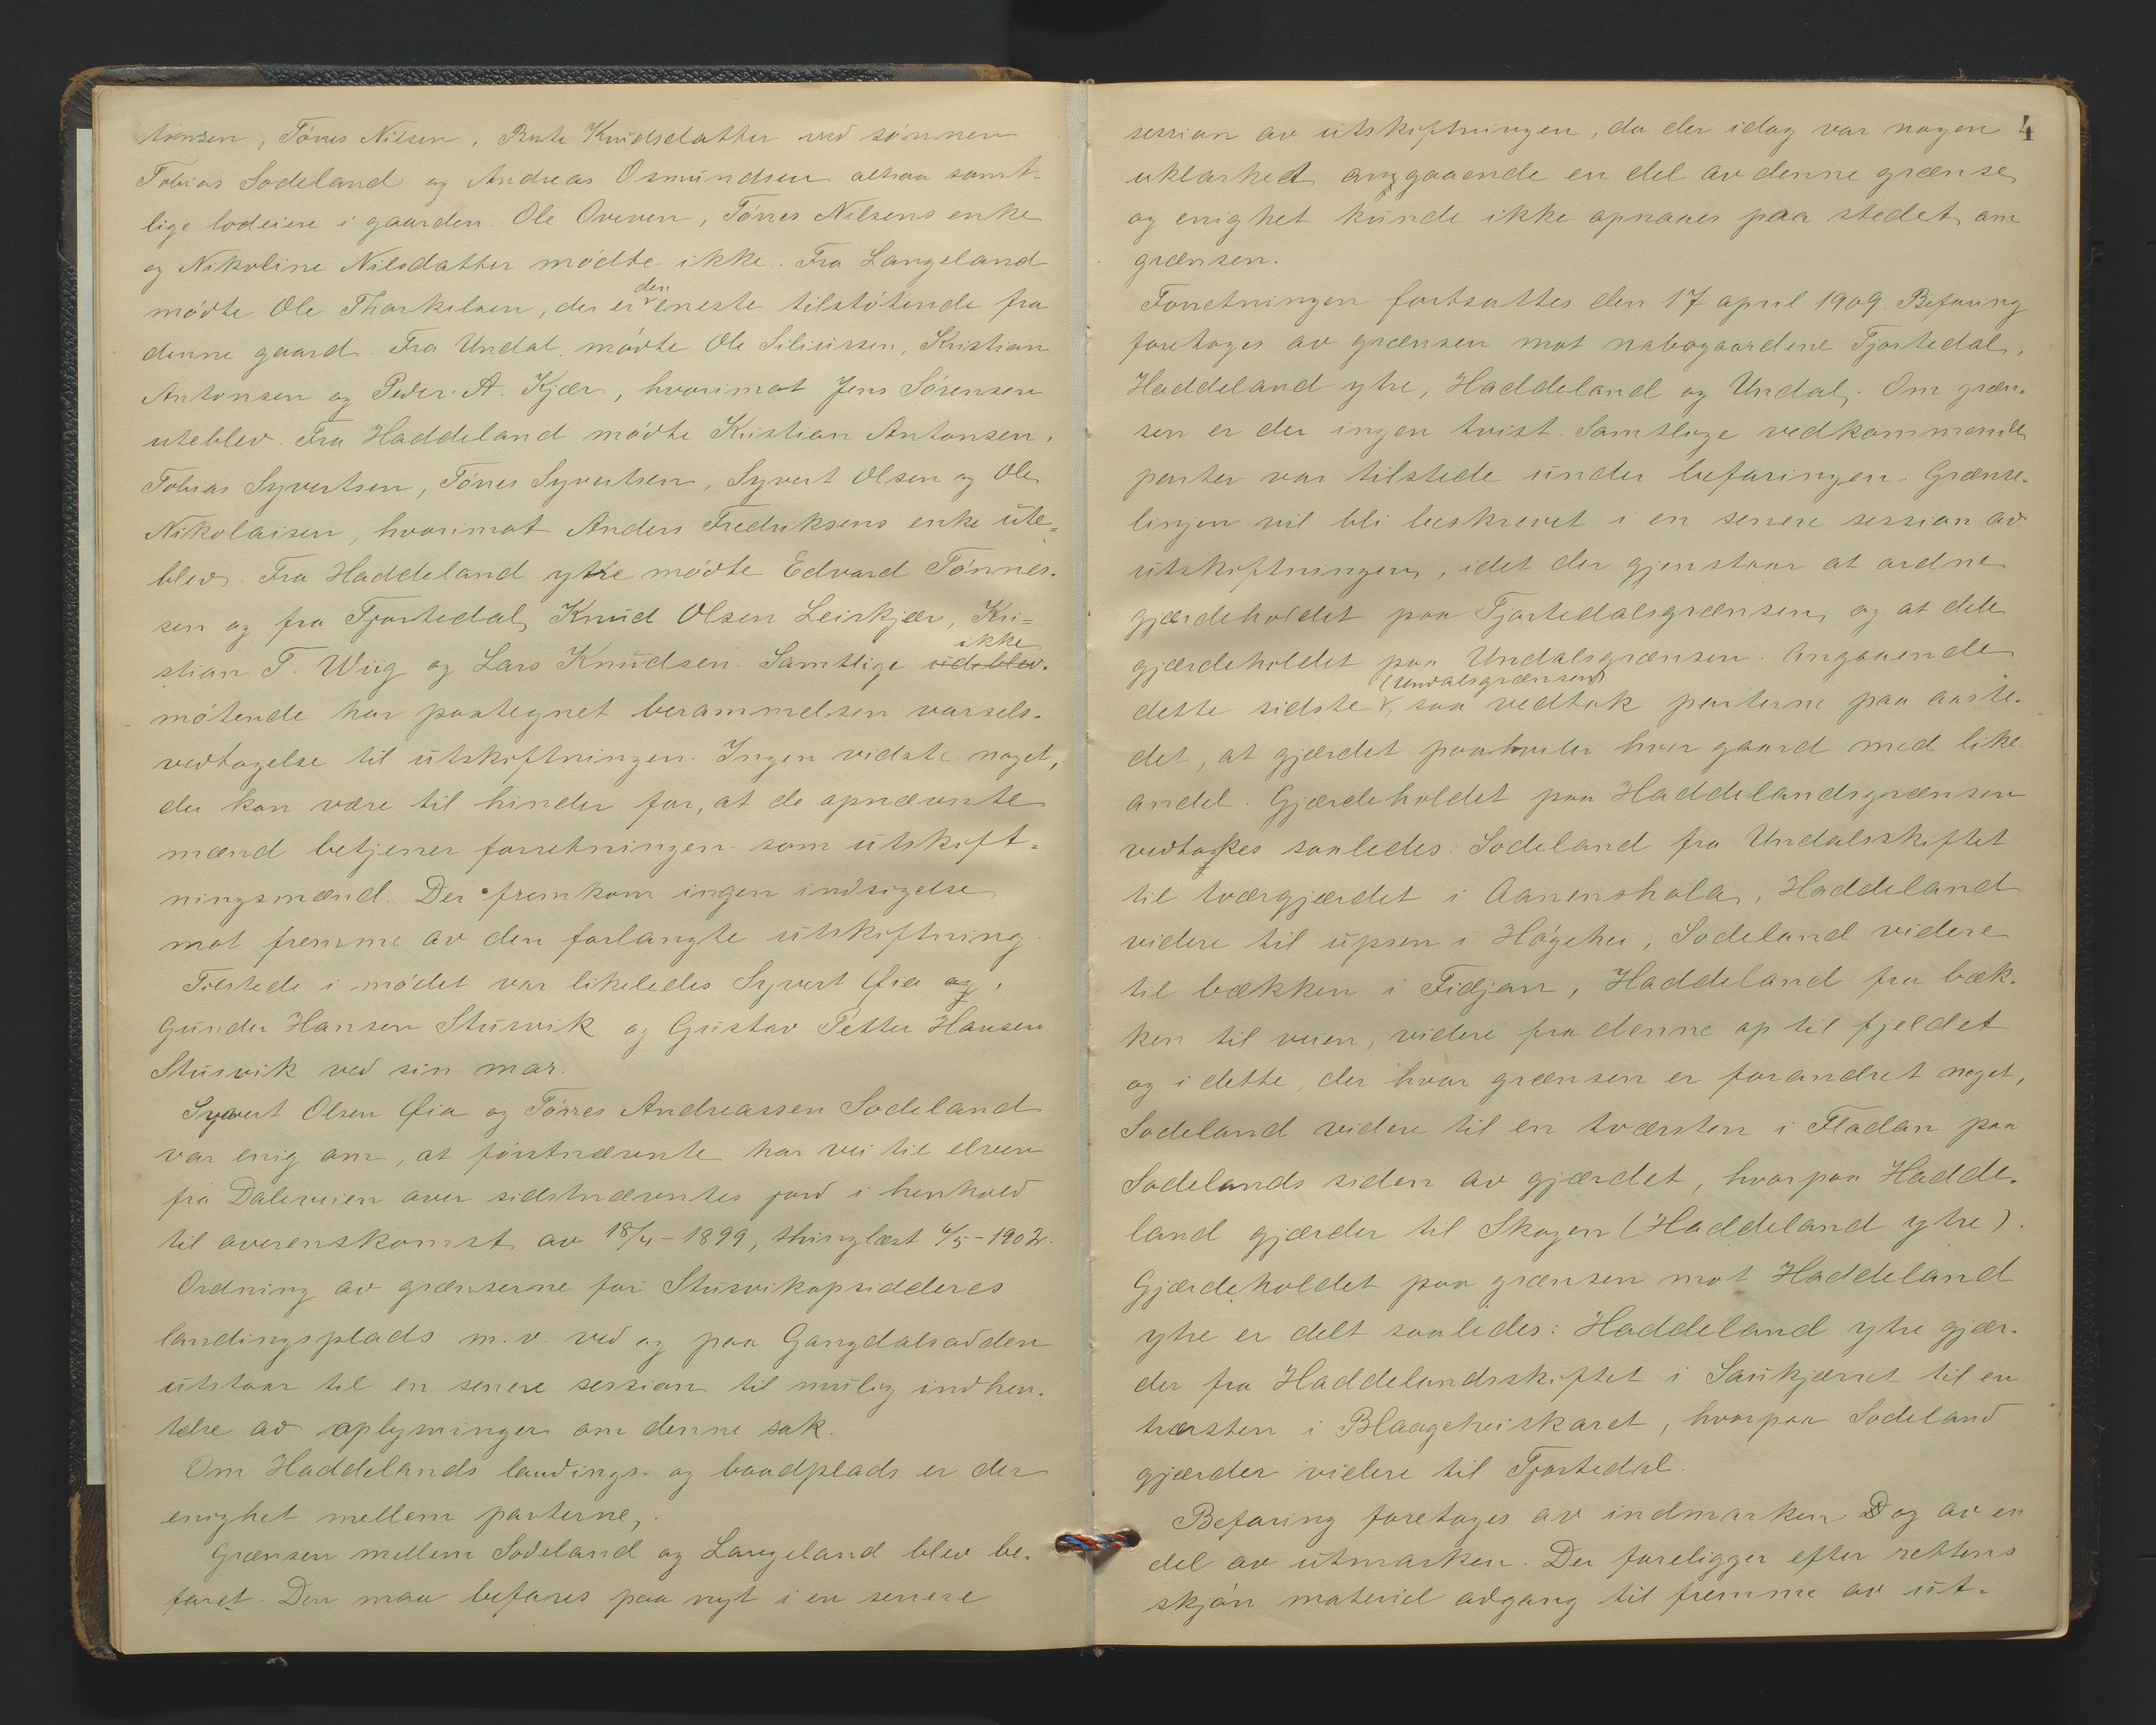 tensen, Tórres Nilsen, Berte Knudsdatter ved sónnen
Tobias Sodeland og Andreas Osmundsen altsaa samt-
lige lodeiere i gaarden. Ole Overen, Tórres Nilsens enke
og Nikoline Nilsdatter mødte ikke. Fra Langeland
den
mødte Ole Thorkelsen, der er eneste tilstøtende fra
denne gaard. Fra Undal mødte Ole Siliussen, Kristian
Antonsen og Peder A. Kjær, hvorimot Jens Sørensen
uteblev. Fra Haddeland mødte Kristian Antonsen,
Tobias Syvertsen, Tórres Syvertsen, Syvert Olsen og Ole
Nikolaisen, hvorimot Anders Fredriksens enke ute-
blev. Fra Haddeland ytre mødte Edvard Tønnes-
sen og fra Tjortedal, Knud Olsen Leirkjær, Kri-
ikke
stian T. Wiig og Lars Knudsen. Samtlige udeblev.
møtende har paategnet berammelsen varsels-
vedtagelse til utskiftningen. Ingen vidste noget,
der kan være til hinder for, at de opnævnte
mænd betjener forretningen som utskift-
ningsmænd. Der fremkom ingen indsigelse
mot fremme av den forlangte utskiftning.
Tilstede i mødet var likeledes Syvert Øia og,
Gunder Hansen Stusvik og Gustav Petter Hansen
Stusvik ved sin mar.
Syvert Olsen Øia og Tórres Andreassen Sodeland
var enig om, at førstnævnte har vei til elven
fra Daleveien over sidstnævntes jord i henhold
til overenskomst av 18/4 - 1899, thinglæst 6/5 - 1902.
Ordning av grænserne for Stusvikopsidderes
landingsplads m.v. ved og paa Gangdalsodden
utstaar til en senere session til mulig indhen-
telse av oplysninger om denne sak.
Om Haddelands landings- og baadplads er der
enighet mellem parterne,
Grænsen mellem Sodeland og Langeland blev be-
faret. Den maa befares paa nyt i en senere
4
session av utskiftningen, da der idag var nogen
uklarhet angaaende en del av denne grænse
og enighet kunde ikke opnaaes paa stedet om
grænsen.
Forretningen fortsattes den 17 april 1909. Befaring
foretoges av grænsen mot nabogaardene Tjortedal,
Haddeland ytre, Haddeland og Undal. Om græn-
sen er der ingen tvist. Samtlige vedkommende
parter var tilstede under befaringen. Grænse-
linjen vil bli beskrevet i en senere session av
utskiftningen, idet der gjenstaar at ordne
gjærdeholdet paa Tjortedalsgrænsen og at dele
gjærdeholdet paa Undalsgrænsen. Angaaende
(Undalsgrænsen)
dette sidste, saa vedtok parterne paa aaste-
det, at gjærdet paahviler hver gaard med like
andel. Gjærdeholdet paa Haddelandsgrænsen
vedtokes saaledes: Sodeland fra Undalsskiftet
til tværgjærdet i Aanenshola, Haddeland
videre til upsen i Høgehei, Sodeland videre
til bækken i Fidjan, Haddeland fra bæk-
ken til veien, videre fra denne op til fjeldet
og i dette, der hvor grænsen er forandret noget,
Sodeland videre til en tværsten i Fladan paa
Sodelands siden av gjærdet, hvorpaa Hadde-
land gjærder til Skogen (Haddeland ytre).
Gjærdeholdet paa grænsen mot Haddeland
ytre er delt saaledes: Haddeland ytre gjær-
der fra Haddelandsskiftet i Saukjærret til en
tværsten i Blaageheiskaret, hvorpaa Sodeland
gjærder videre til Tjortedal.
Befaring foretoges av indmarken og av en
del av utmarken. Der foreligger efter rettens
skjøn materiel adgang til fremme av ut-